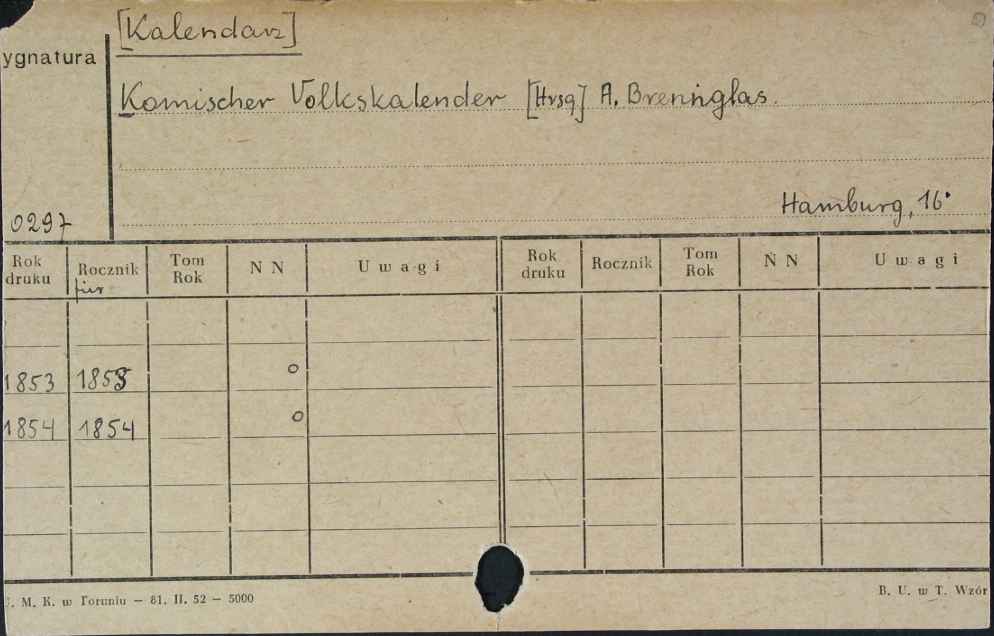 [Kalendarz]
ygnatura
Komischer Volkskalender [Hrsg] A. Brennglas.
Hamburg, 16°
0297
Rok druku Rocznik Tom Rok N N Uwagi Rok druku Rocznik Tom Rok N N Uwagi
für
1853 1853 o
1854 1854 o
. M. K. w Toruniu — 81. II. 52 — 5000
B. U. w T. Wzór